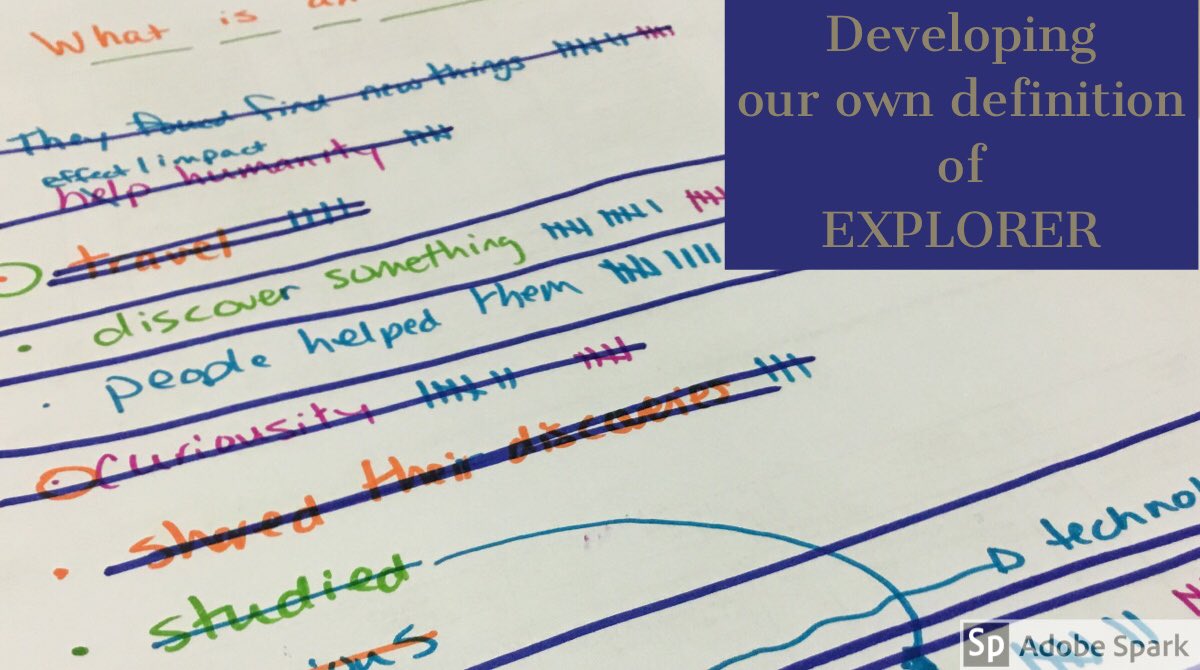 What is an
They found find new things
effect / impact
help humanity
travel
discover something
people helped them
Curiousity
shared their discoveries
studied
technolo
Developing
our own definition
of
EXPLORER
Sp Adobe Spark